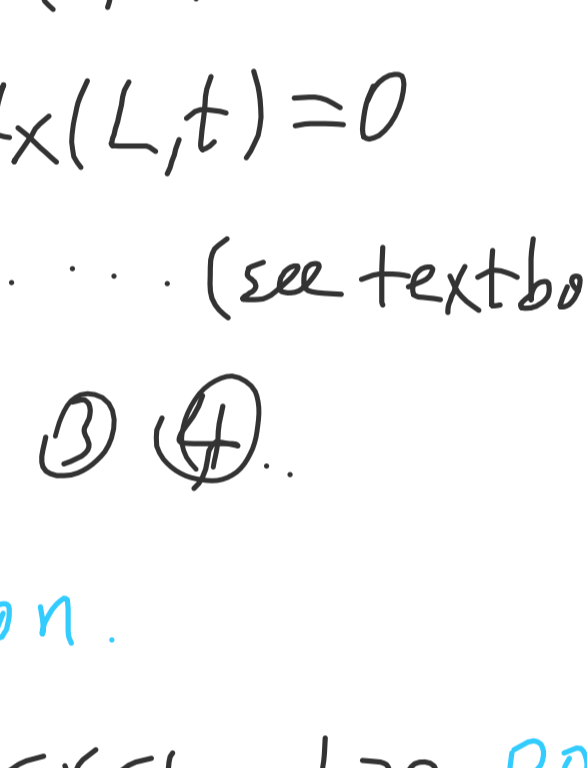 x(L,t)=0
. . . . (see textbo
③ ④..
on.